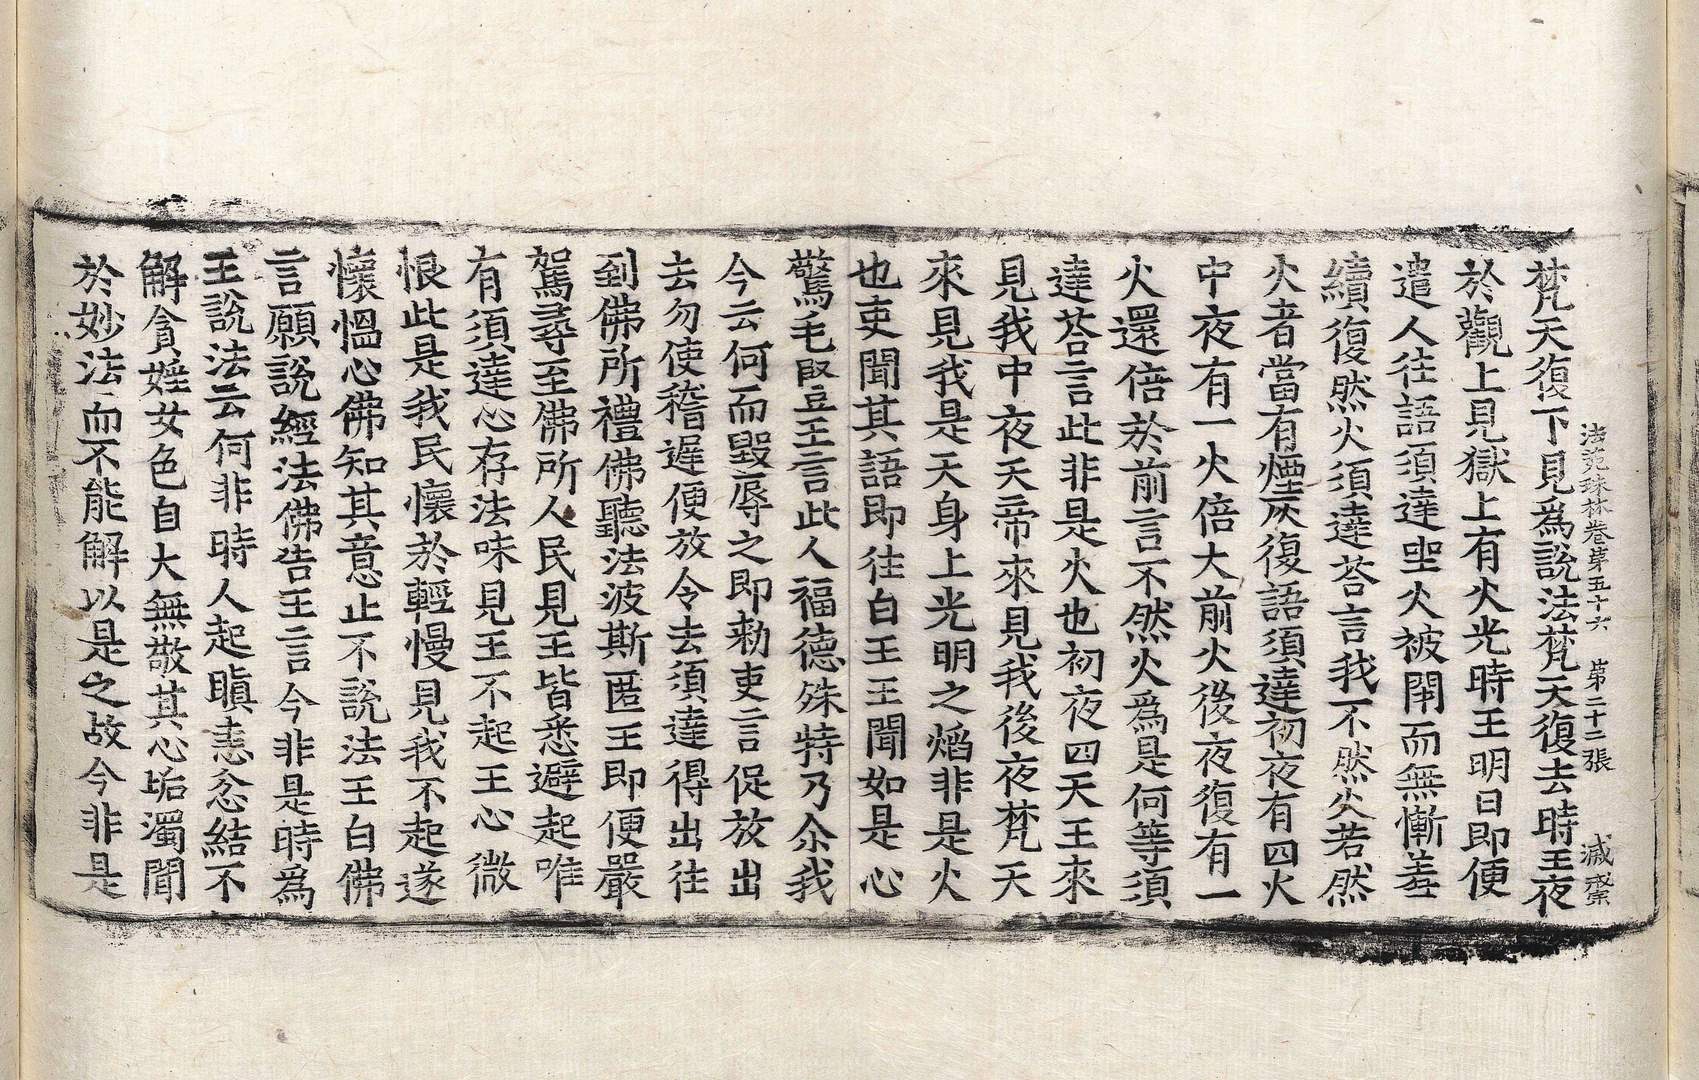 法苑珠林卷第五十六 第二十二張 滅㝹
梵天復下見爲說法梵天復去時王夜
於觀上見獄上有火光時王明日即便
遣人往語須達坐火被閉而無慚羞
續復然火須達荅言我不然火若然
火者當有煙灰復語須達初夜有四火
中夜有一火倍大前火後夜復有一
火還倍於前言不然火爲是何等須
達荅言此非是火也初夜四天王來
見我中夜天帝來見我後夜梵天
來見我是天身上光明之焰非是火
也吏聞其語即往白王王聞如是心
驚毛竪王言此人福德殊特乃尒我
今云何而毀辱之即勑吏言促放出
去勿使稽遲便放令去須達得出往
到佛所禮佛聽法波斯匿王即便嚴
駕尋至佛所人民見王皆悉避起唯
有須達心存法味見王不起王心微
恨此是我民懷於輕慢見我不起遂
懷慍心佛知其意止不說法王白佛
言願說經法佛告王言今非是時爲
王說法云何非時人起瞋恚忿結不
解貪婬女色自大無敬其心垢濁聞
於妙法而不能解以是之故今非是